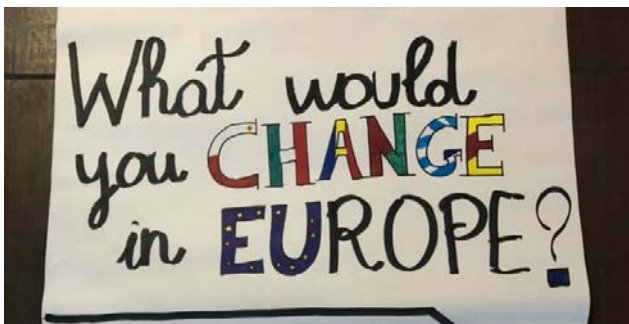 What would
you CHANGE
in EUROPE?